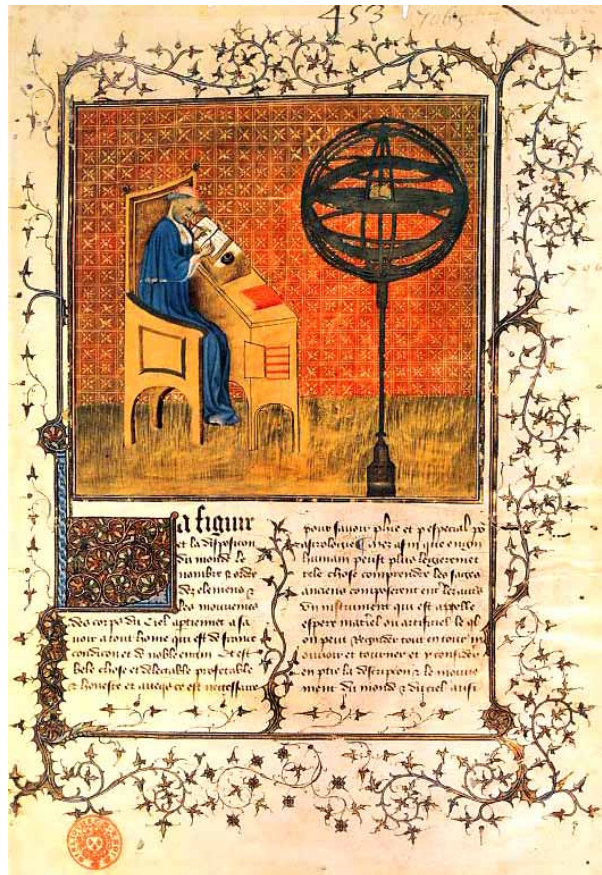 453
7065
La figure
et la disposicion
du monde le
nombre & ordre
des elemens &
les mouvemens
des corps du ciel aptiennet a sa
voir a tout home qui est de franc
condicion et de noble engin Et est
bele chose et delectable profetable
& honeste et aveqs ce est necessaire
pour savoir phie et p especial po
astrologie Mes afin que engin
humain peust plus legierement
tele chose comprendre les sages
anciens composerent un
Un instrument qui est appelle
espere materiel ou artificiel le ql
on peut regarder tout entour
mouvoir et tourner et y considerer
en ptie la descripcion & le mouve
ment du monde & du ciel aussi